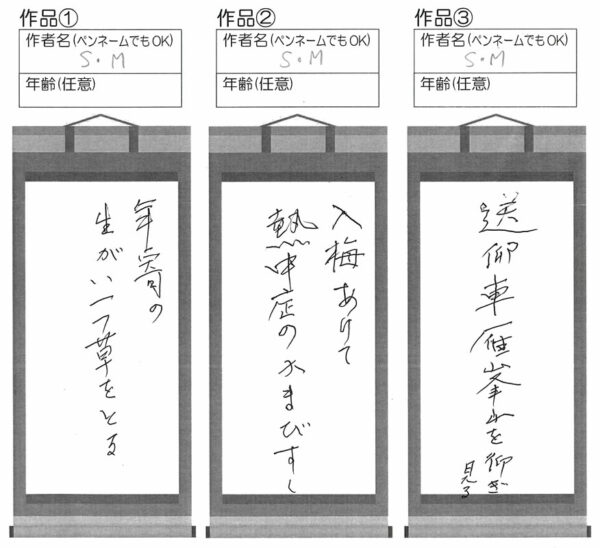 作品①
作者名(ペンネームでもOK)
S・M
年齢(任意)
年寄の
生がいつ草をとる
作品②
作者名(ペンネームでもOK)
S・M
年齢(任意)
入梅あけて
熱中症の水まびすし
作品③
作者名(ペンネームでもOK)
S・M
年齢(任意)
送仰車雁峯山を仰ぎ
見る